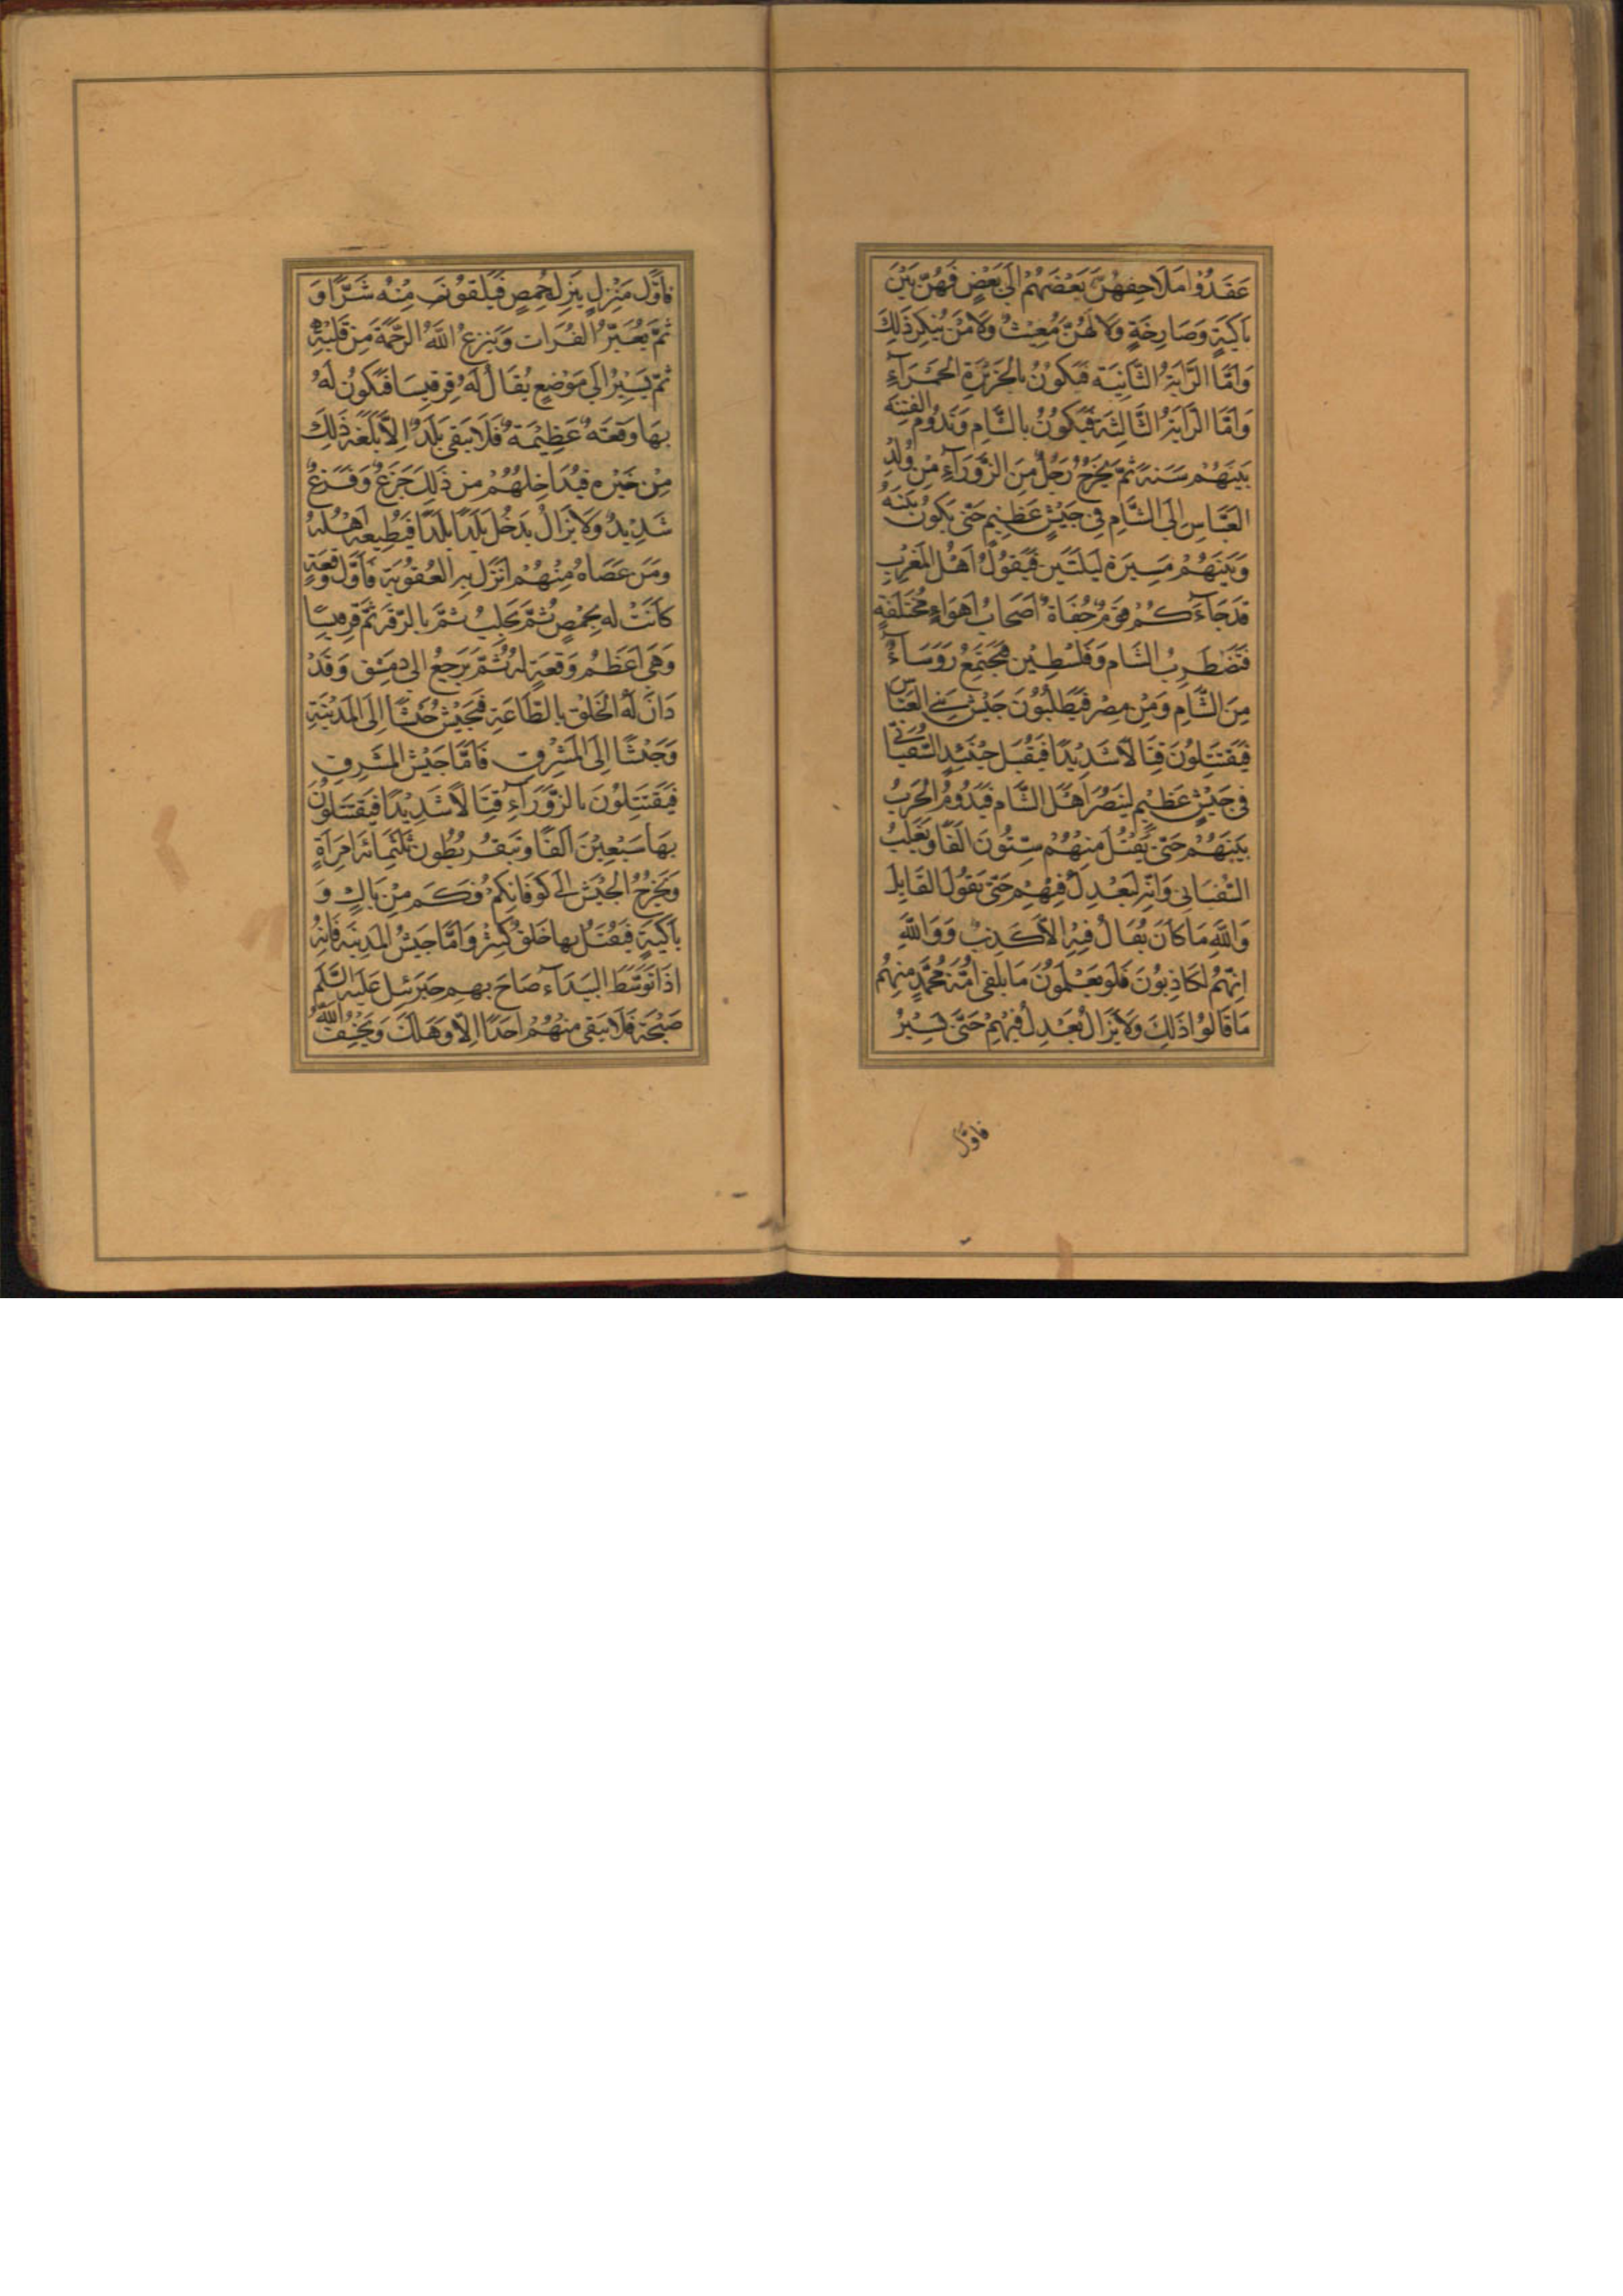 عَقَدُوْا مَلَاحِفَهُنَّ بَعْضَهُمْ اِلٰى بَعْضٍ فَهُنَّ بَيْنَ
بَاكِيَةٍ وَصَارِخَةٍ وَلَا لَهُنَّ مُغِيْثٌ وَلَا مَنْ يُنْكِرُ ذَلِكَ
وَاَمَّا الرَّايَةُ الثَّانِيَة فَيَكُوْنُ بِالْجَزِيْرَةِ الحَمْرَآءِ
وَاَمَّا الرَّايَةُ الثَّالِثَة فَيَكُوْنُ بِالشَّامِ وَتَدُوْمُ الفِتْنَه
بَيْنَهُمْ سَنَةً ثُمَّ يَخْرُجُ رَجُلٌ مِنَ الزَّوْرَآءِ مِنْ وُلْدِ
العَبَّاسِ اِلَى الشَّامِ فِي جَيْشٍ عَظِيْمٍ حَتّى يَكُوْنُ بَيْنَهُ
وَبَيْنَهُمْ مَسِيْرَة لَيْلَتَيْنِ فَيَقُوْلُ اَهْلُ المَغْرِبِ
قَدجَآءَكُمْ قَوْمٌ جُفَاةٌ اَصْحَابُ اَهْوَاءٍ مُخْتَلِفَةٍ
فَتَضْطَرِبُ الشَّام وَفَلَسْطِيْن فَيَجْتَمِعُ رَوَسَآءُ
مِنَ الشَّامِ وَمِنْ مِصْر فَيَطْلُبُوْنَ جَيْش بَنِي العَبَّاس
فَيَقْتَتِلُوْنَ قِتَالًا شَدِيْدًا فَيُقْبِل حِيْنَئِذٍ السُّفْيَانِي
فِي جَيْشٍ عَظِيْمٍ لِيَنْصُرَ اَهْلَ الشَّام فَيَدُوْمُ الحَرْبُ
بَيْنَهُمْ حَتّى يُقْتَلُ مِنْهُمْ سِتُّوْنَ اَلْفًا وَيَغْلِبُ
السُّفْيَانِي وَاِنَّهُ لَيَعْدِلُ فِيْهِمْ حَتّى يَقُوْلُ القَايِلُ
وَاللّٰهِ مَا كَانَ يُقَالُ فِيْهِ اِلَّا كَذِبٌ وَوَاللّٰهِ
اِنَّهُمْ لَكَاذِبُوْنَ فَلَو يَعْلَمُوْنَ مَا يَلْقى اُمَّةَ مُحَمَّدٍ مِنْهُمْ
مَا قَالُوْا ذَلِكَ وَلَا يَزَالُ يَعْدِلُ فِيْهِمْ حَتّى يَسِيْرُ
فَاوَّل
فَاَوَّلُ مَنْزِلٍ يَنْزِلُهُ حِمْص فَيَلْقَوْنَ مِنْهُ شَرًّا وَ
ثُمَّ يَعْبُرُ الفُرَات وَيَنْزِعُ اللّٰهُ الرَّحْمَةَ مِنْ قَلْبِهِ
ثُمَّ يَسِيْرُ اِلى مَوْضِعٍ يُقَالُ لَهُ قِرقِيسَا فَيَكُوْنُ لَهُ
بِهَا وَقْعَةٌ عَظِيْمَةٌ فَلَا يَبْقى بَلَدٌ اِلَّا بَلَغَهُ ذَلِكَ
مِنْ خَبَرِه فَيُدَاخِلُهُمْ مِنْ ذَلِكَ جَزَعٌ وَفَزَعٌ
شَدِيْدٌ وَلَا يَزَالُ يَدْخُلُ بَلَدًا بَلَدًا فَيُطِيعُهُ اَهْلُهُ
وَمَنْ عَصَاهُ مِنْهُمْ اَنْزَلَ بِهِ العُقُوْبَة فَاَوَّل وَقْعَةٍ
كَانَتْ لَه بِحِمْصٍ ثُمَّ بِحَلَبٍ ثُمَّ بِالرَّقَّه ثُمَّ قِرقِيسَا
وَهِيَ اَعْظَمُ وَقْعَةٍ لَهُ ثُمَّ يَرْجِعُ اِلى دِمَشْق وَقَدْ
دَانَ لَهُ الْخَلْقُ بِالطَّاعَةِ فَيُجَيِّشُ جَيْشًا اِلَى المَدِيْنَةِ
وَجَيْشًا اِلَى المَشْرِق فَاَمَّا جَيْشُ المَشْرِق
فَيَقْتَتِلُوْنَ بِالزَّوْرَآءِ قِتَالًا شَدِيْدًا فَيَقْتَتِلُوْنَ
بِهَا سَبْعِيْنَ اَلْفًا وَتُبْقَرُ بُطُونُ ثَلَثْمِائَة اِمْرَاَةٍ
وَيَخْرُجُ الْجَيْشُ اِلى كُوْفَانِكُمْ فَكَمْ مِنْ بَاكٍ وَ
بَاكِيَةٍ فَيُقْتَلُ بِهَا خَلْقٌ كَثِيْرٌ وَاَمَّا جَيْشُ المَدِيْنَه فَاِنَّهُ
اِذَا تَوَسَّطَ البَيْدَآءَ صَاحَ بِهِم جَبْرَئِيل عَلَيْهِ السَّلَم
صَيْحَةً فَلَا يَبْقى مِنْهُمْ اَحَدًا اِلَّا وَهَلَكَ وَيَخْسِفُ اللّٰهُ